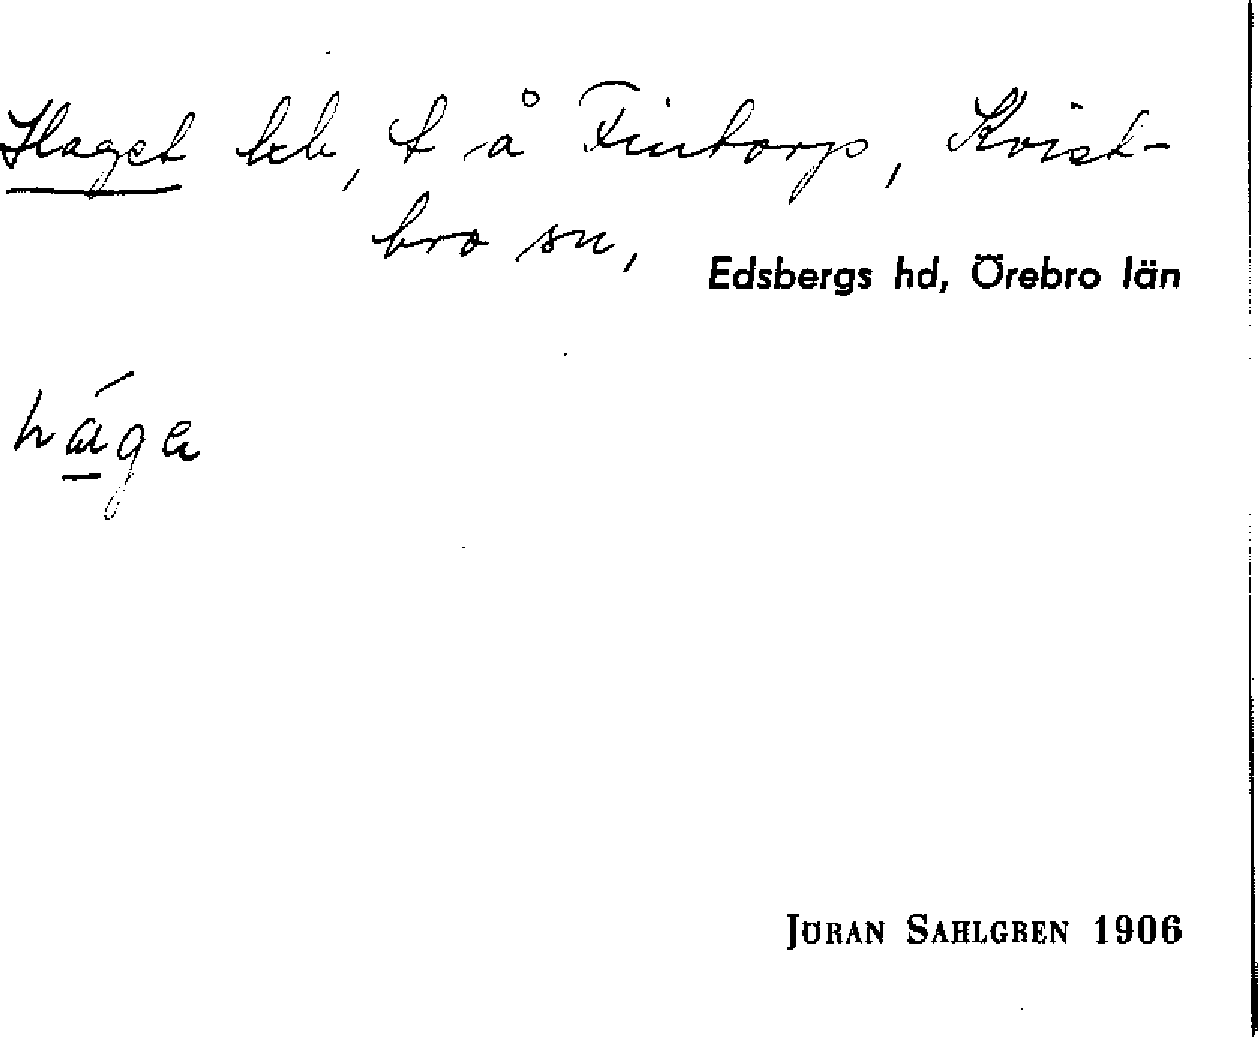 Haget lch, t å Fintorp, Kvist-
bro sn,
Edsbergs hd, Örebro län
hága
JÖRAN SAHLGREN 1906